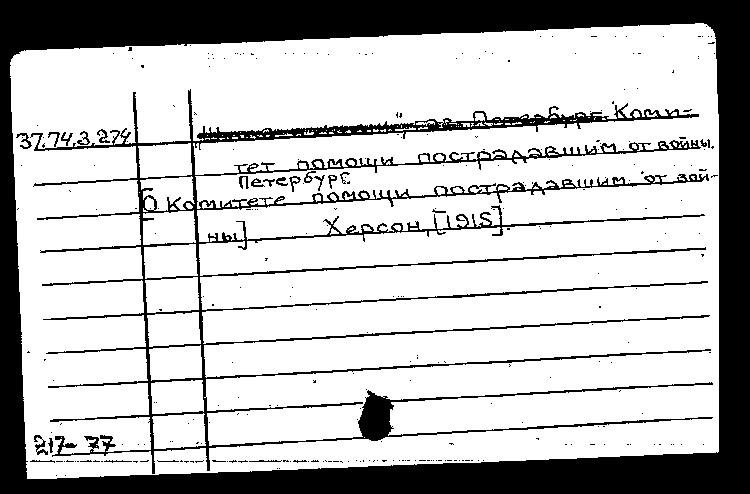 37.74.3.274 Петербург. Коми-
тет помощи пострадавшим от войны.
Петербург
[О Комитете помощи пострадавшим от вой-
ны]. Херсон, [1915].
217-77